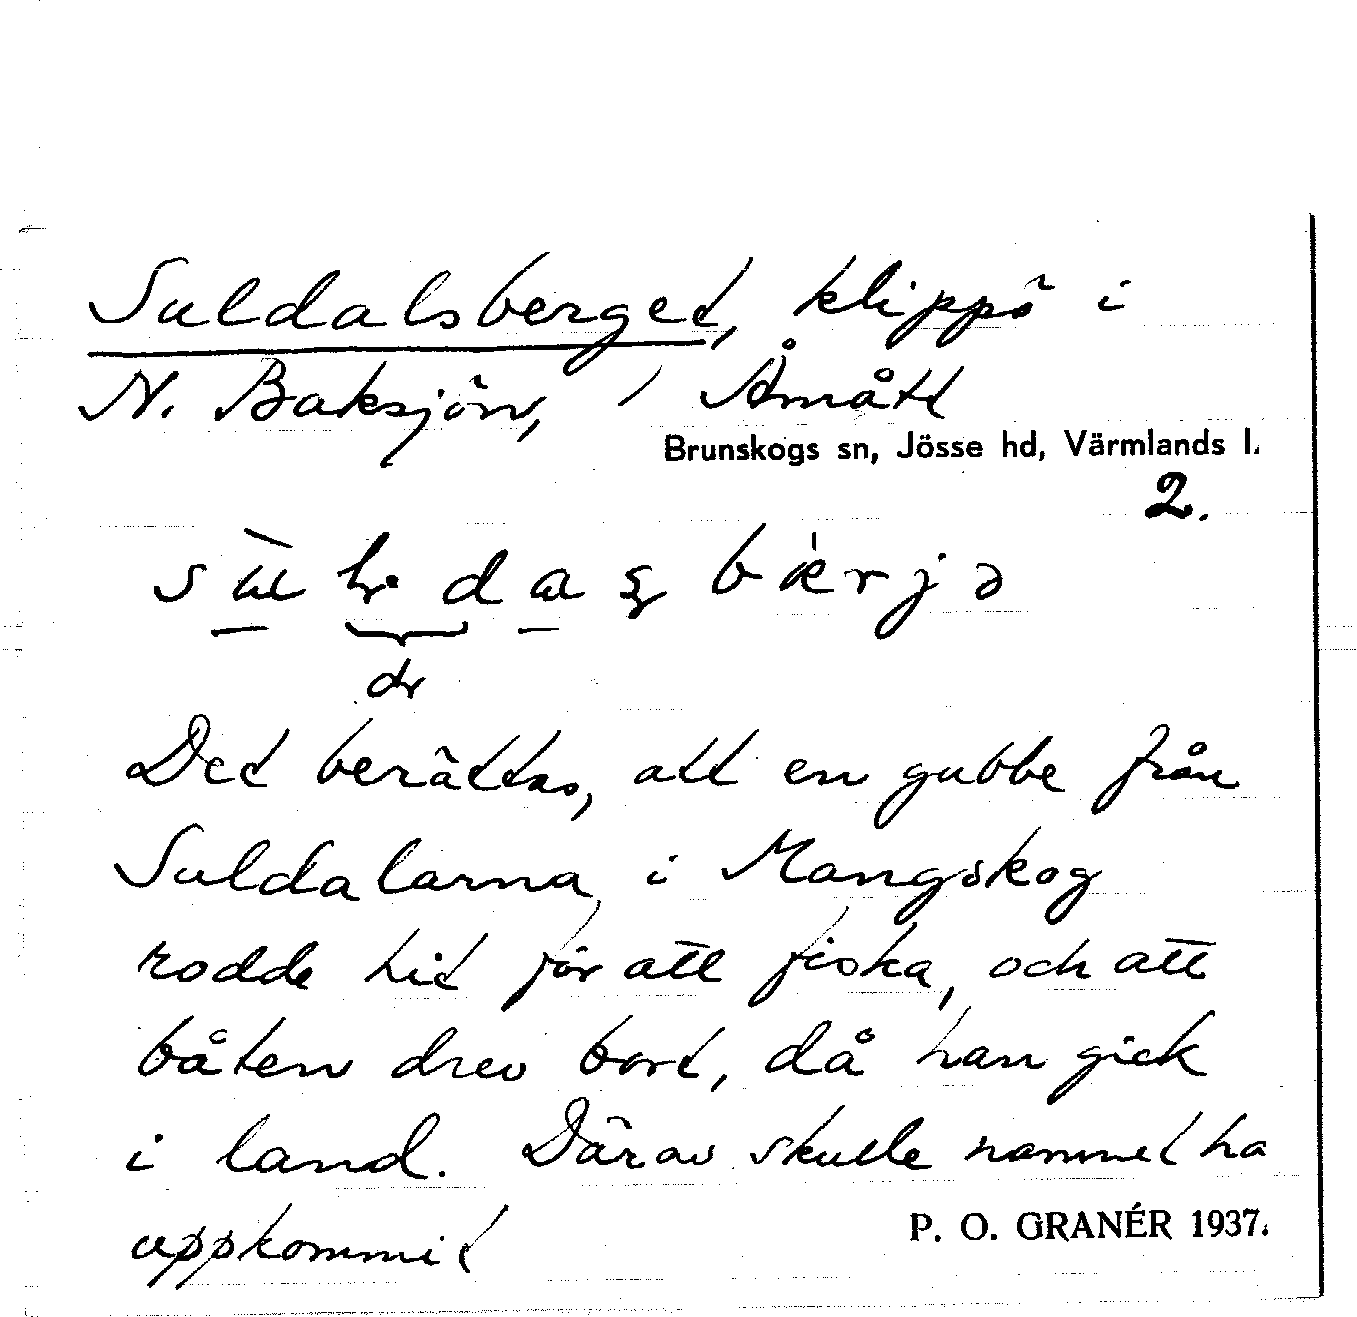 Suldalsberget, klippö i
N. Baksjön, i Åmått
Brunskogs sn, Jösse hd, Värmlands l.
2.
Det berättas, att en gubbe från
Suldalarna i Mangskog
rodde hit för att fiska, och att
båten drev bort, då han gick
i land. Därav skulle namnet ha
uppkommit
P. O. GRANÉR 1937.